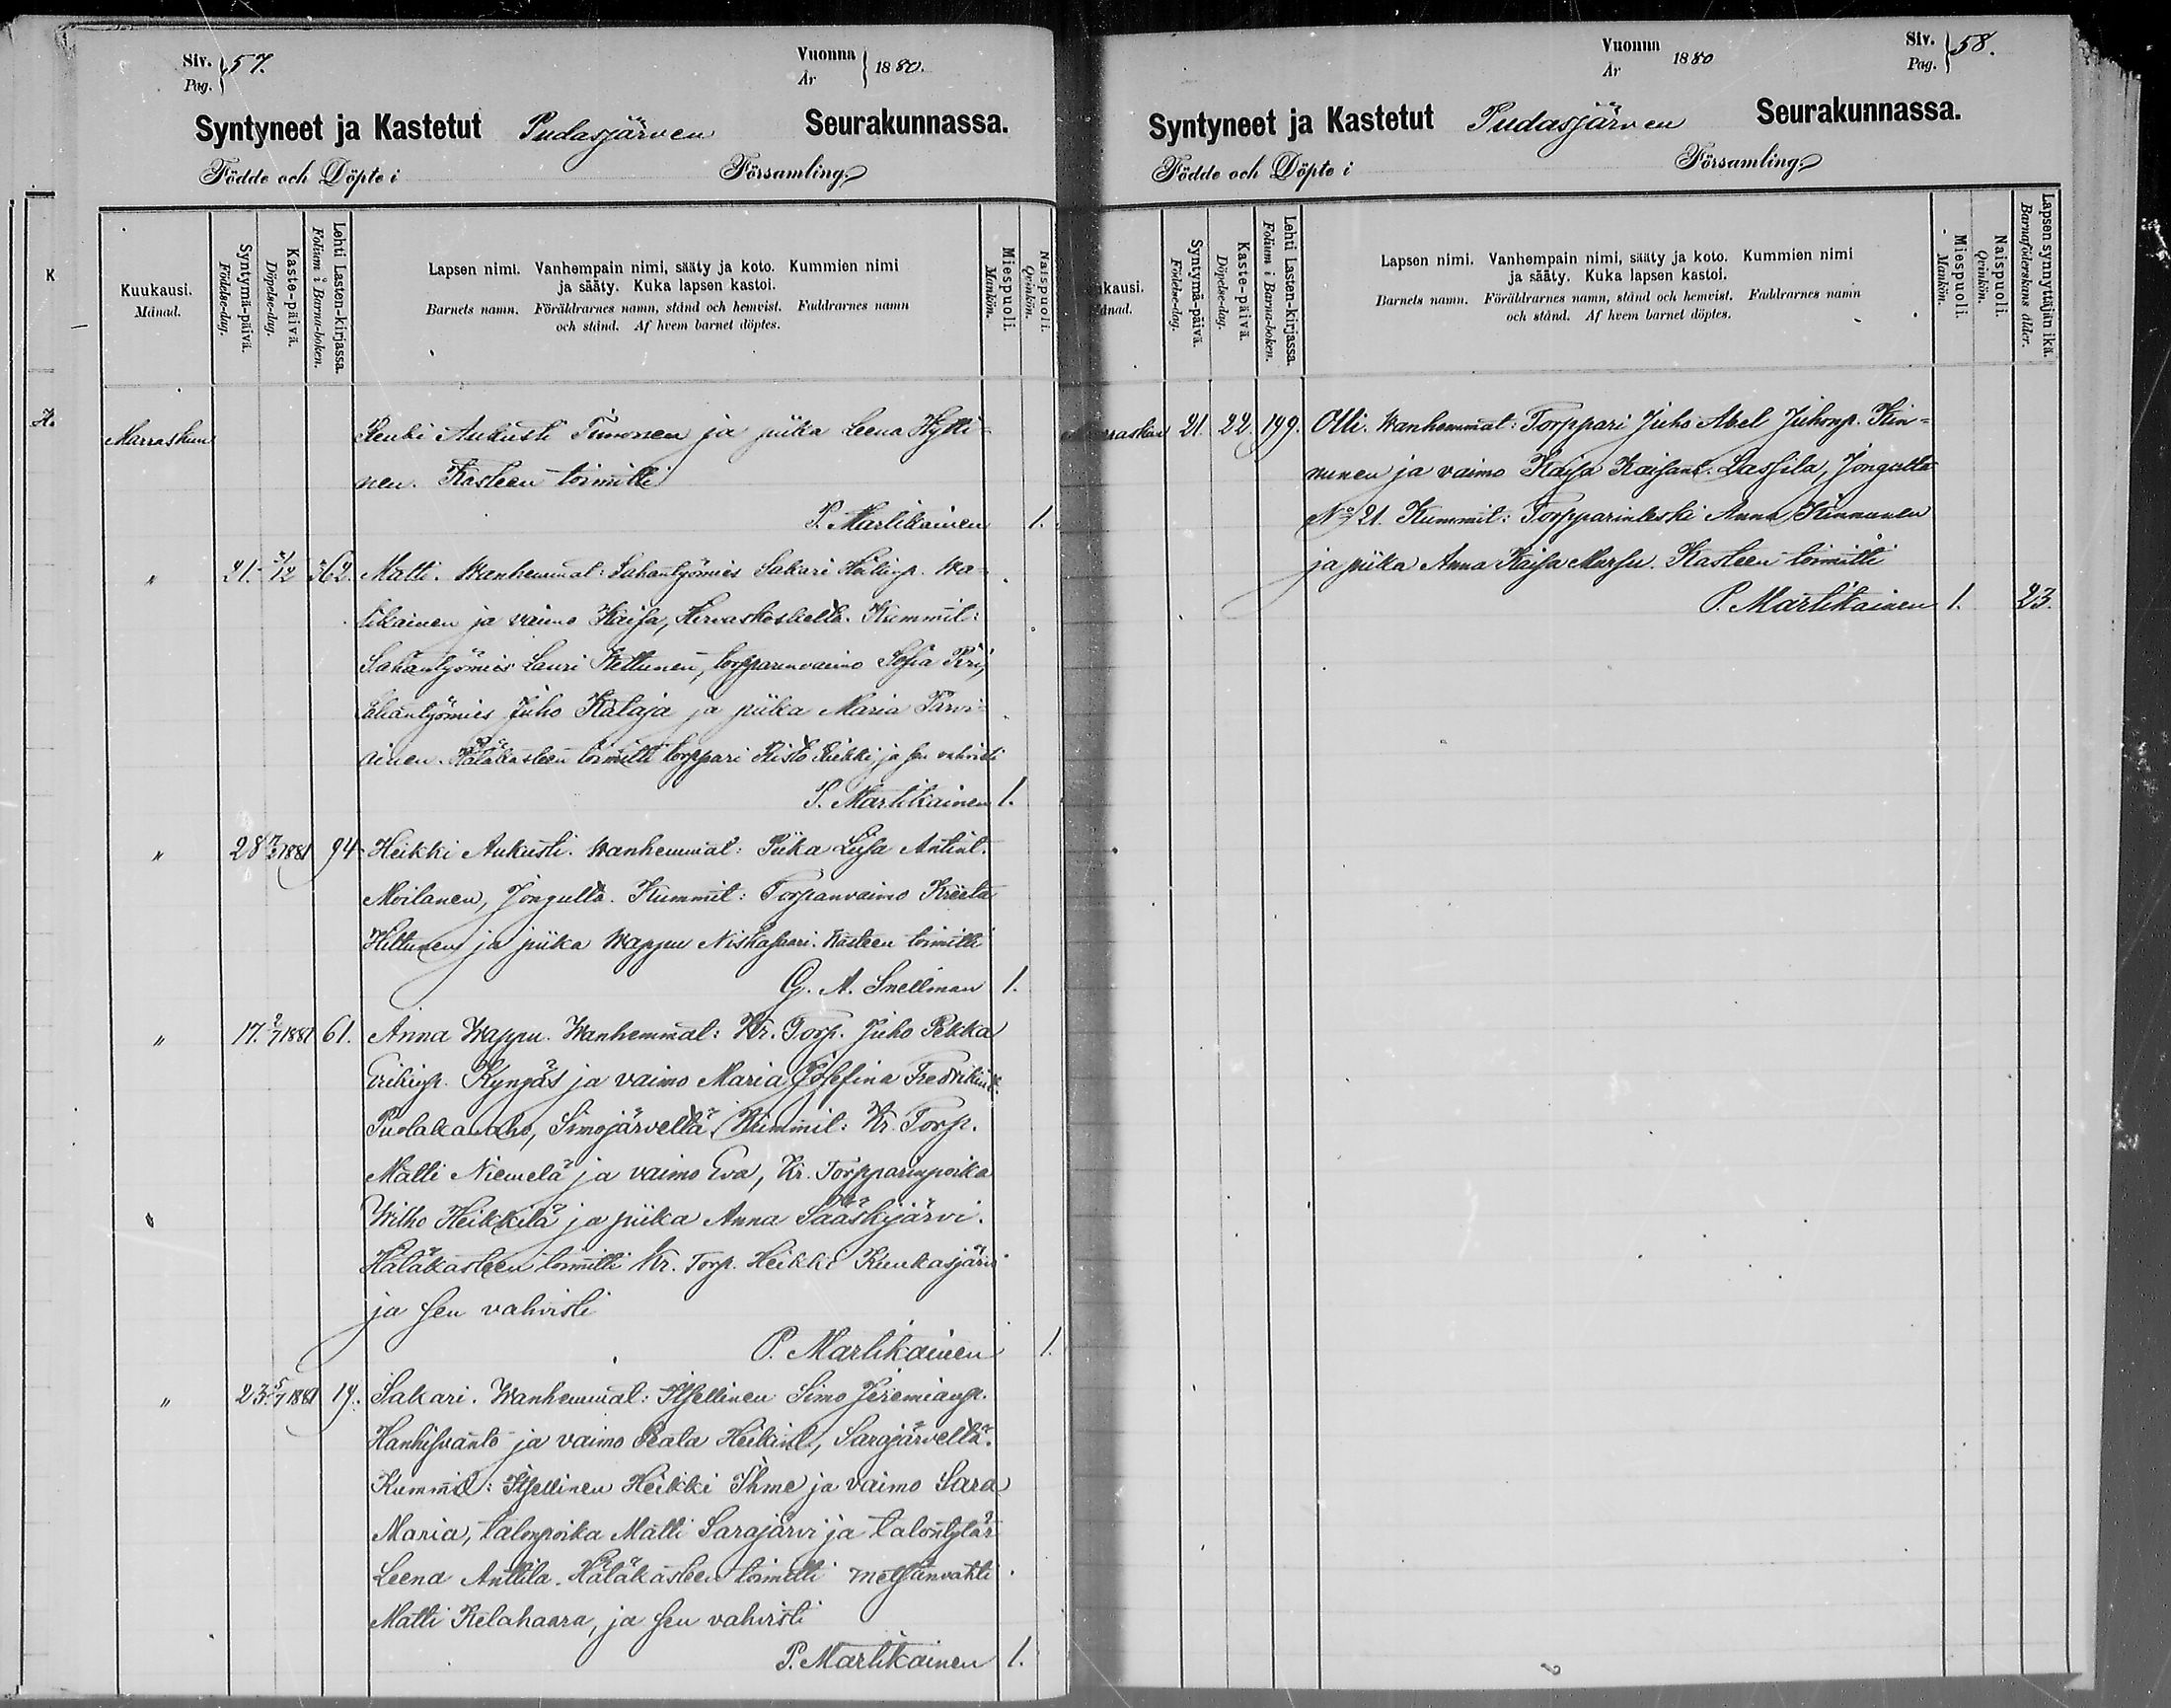 Siv. 57.
Pag.
Vuonna 1880.
År
Syntyneet ja Kastetut Pudasjärven Seurakunnassa.
Födde och Döpte i Församling.
Kuukausi.
Månad.
Syntymä-päivä.
Födelse-dag.
Kaste-päivä.
Döpelse-dag.
Lehti Lasten-kirjassa.
Folium i Barna-boken.
Lapsen nimi. Vanhempain nimi, sääty ja koto. Kummien nimi
ja sääty. Kuka lapsen kastoi.
Barnets namn. Föräldrarnes namn, stånd och hemvist. Faddrarnes namn
och stånd. Af hvem barnet döptes.
Miespuoli.
Mankön.
Naispuoli.
Qvinkön.
Marraskuu Aukusti Timonen ja piika Leena Hytti-
nen. Kasteen toimitti
P. Martikainen 1.
" 21. 5/12 362. Matti. Wanhemmat: Sahantyömies Sakari Wa-
tikainen ja vaimo Kaisa, Kummit:
Sahantyömies Lauri Kettunen, torpparinvaimo Sofia
sahantyömies Juho Kataja ja piika Maria Parvi-
ainen. Hätäkasteen toimitti torppari Risto ja sen vahvisti
P. Martikainen 1.
" 28 1881 94 Heikki Aukusti. Wanhemmat: Piika Liisa Antint.
Moilanen, Jongulta. Kummit: Torpanvaimo Kreeta
Hiltunen ja piika Wappu Niskasaari. Kasteen toimitti
G. A. Snellman 1.
" 17. 2/7 1881 61. Anna Wappu. Wanhemmat: Kr. Torp. Juho Pekka
Erikinp. Kyngäs ja vaimo Maria Josefina Fredrikint.
Puolakanaho, Simojärveltä. Kummit: Kr. Torp.
Matti Niemelä ja vaimo Eva, Kr. Torpparinpoika
Wilho Heikkilä ja piika Anna Sääskijärvi.
Hätäkasteen toimitti Kr. Torp. Heikki Kuukasjärvi
ja sen vahvisti
P. Martikainen 1.
" 23. 5/7 1881 19. Sakari. Wanhemmat: Itsellinen Simo Jeremianp.
Hanhisuanto ja vaimo Peata Heikint., Sarajärveltä.
Kummit: Itsellinen Heikki Ihme ja vaimo Sara
Maria, talonpoika Matti Sarajärvi ja talontytär
Leena Anttila. Hätäkasteen toimitti metsänvahti
Matti Kelahaara, ja sen vahvisti
P. Martikainen 1.
Vuonna 1880
År
Siv. 58.
Pag.
Syntyneet ja Kastetut Pudasjärven Seurakunnassa.
Födde och Döpte i Församling.
ukausi.
ånad.
Syntymä-päivä.
Födelse-dag.
Kaste-päivä.
Döpelse-dag.
Lehti Lasten-kirjassa.
Folium i Barna-boken.
Lapsen nimi. Vanhempain nimi, sääty ja koto. Kummien nimi
ja sääty. Kuka lapsen kastoi.
Barnets namn. Föräldrarnes namn, stånd och hemvist. Faddrarnes namn
och stånd. Af hvem barnet döptes.
Miespuoli.
Mankön.
Naispuoli.
Qvinkön.
Lapsen synnyttäjän ikä.
Barnaföderskans ålder.
Marraskuu 21. 22. 199. Olli. Wanhemmat: Torppari Juho Abel Juhonp. Kin-
nunen ja vaimo Kaisa Kaisant. Lassila, Jongulta
No 21. Kummit: Torpparinleski Anna Kinnunen
ja piika Anna Kaisa Mursu. Kasteen toimitti
P. Martikainen 1. 23.